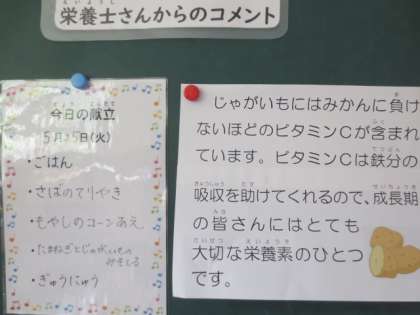 栄養士さんからのコメント
今日の献立
5月15日(火)
・ごはん
・さばのてりやき
・もやしのコーンあえ
・たまねぎとじゃがいもの
みそしる
・ぎゅうにゅう
じゃがいもにはみかんに負け
ないほどのビタミンCが含まれ
ています。ビタミンCは鉄分の
吸収を助けてくれるので、成長期
の皆さんにはとても
大切な栄養素のひとつ
です。